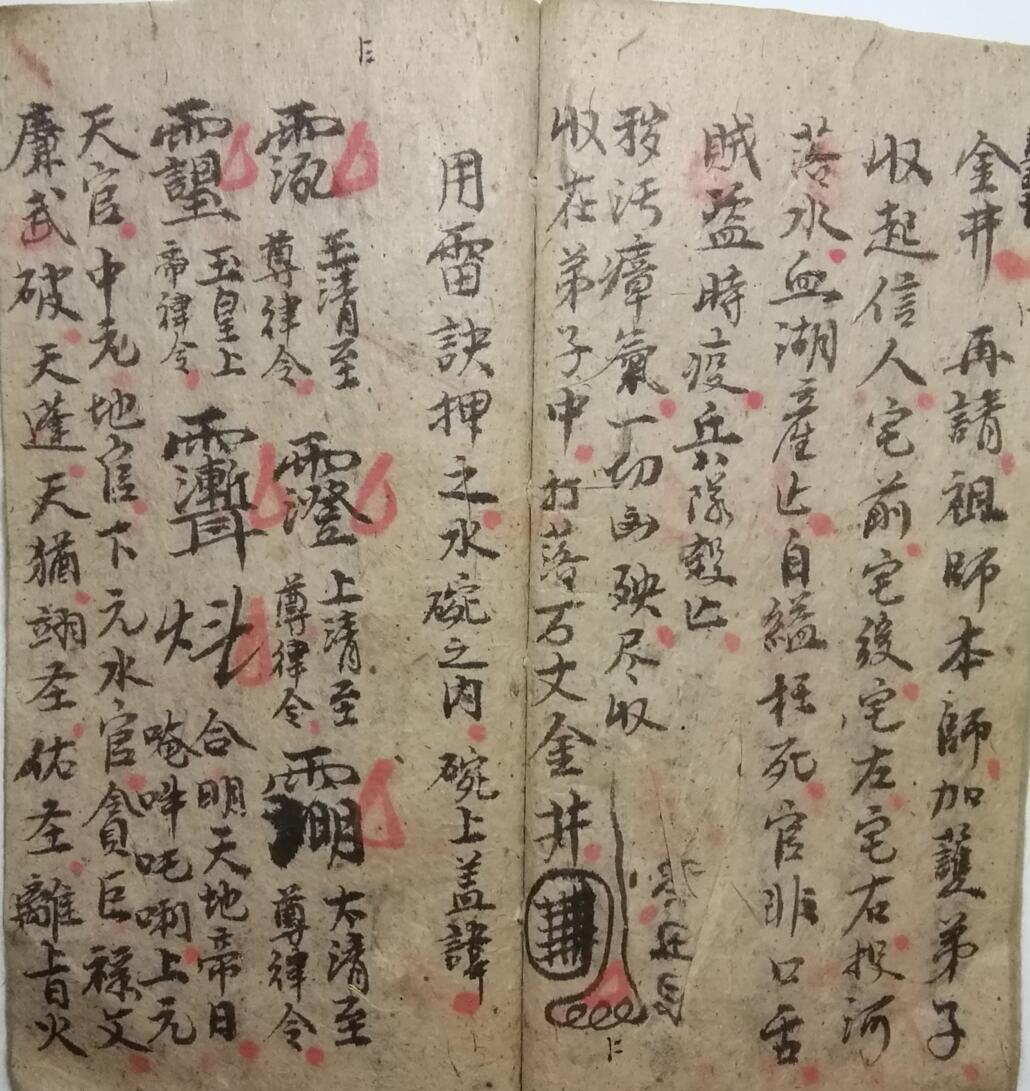 金井 再請祖師本師加護弟子
收起信人宅前宅後宅左宅右投河
落水血湖產亡自縊枉死官非口舌
賊盜時疫兵隊殺亡
秽污瘴氣一切凶殃尽收
收在弟子中打落万丈金井
用雷訣押之水碗之内碗上盖諱
玉清至尊律令
上清至尊律令
太清至尊律令
玉皇上帝律令
合明天地帝日
唵吽吒唎上元
天官中元地官下元水官貪巨祿文
廉武破天蓬天猶翊圣佑圣離旨火